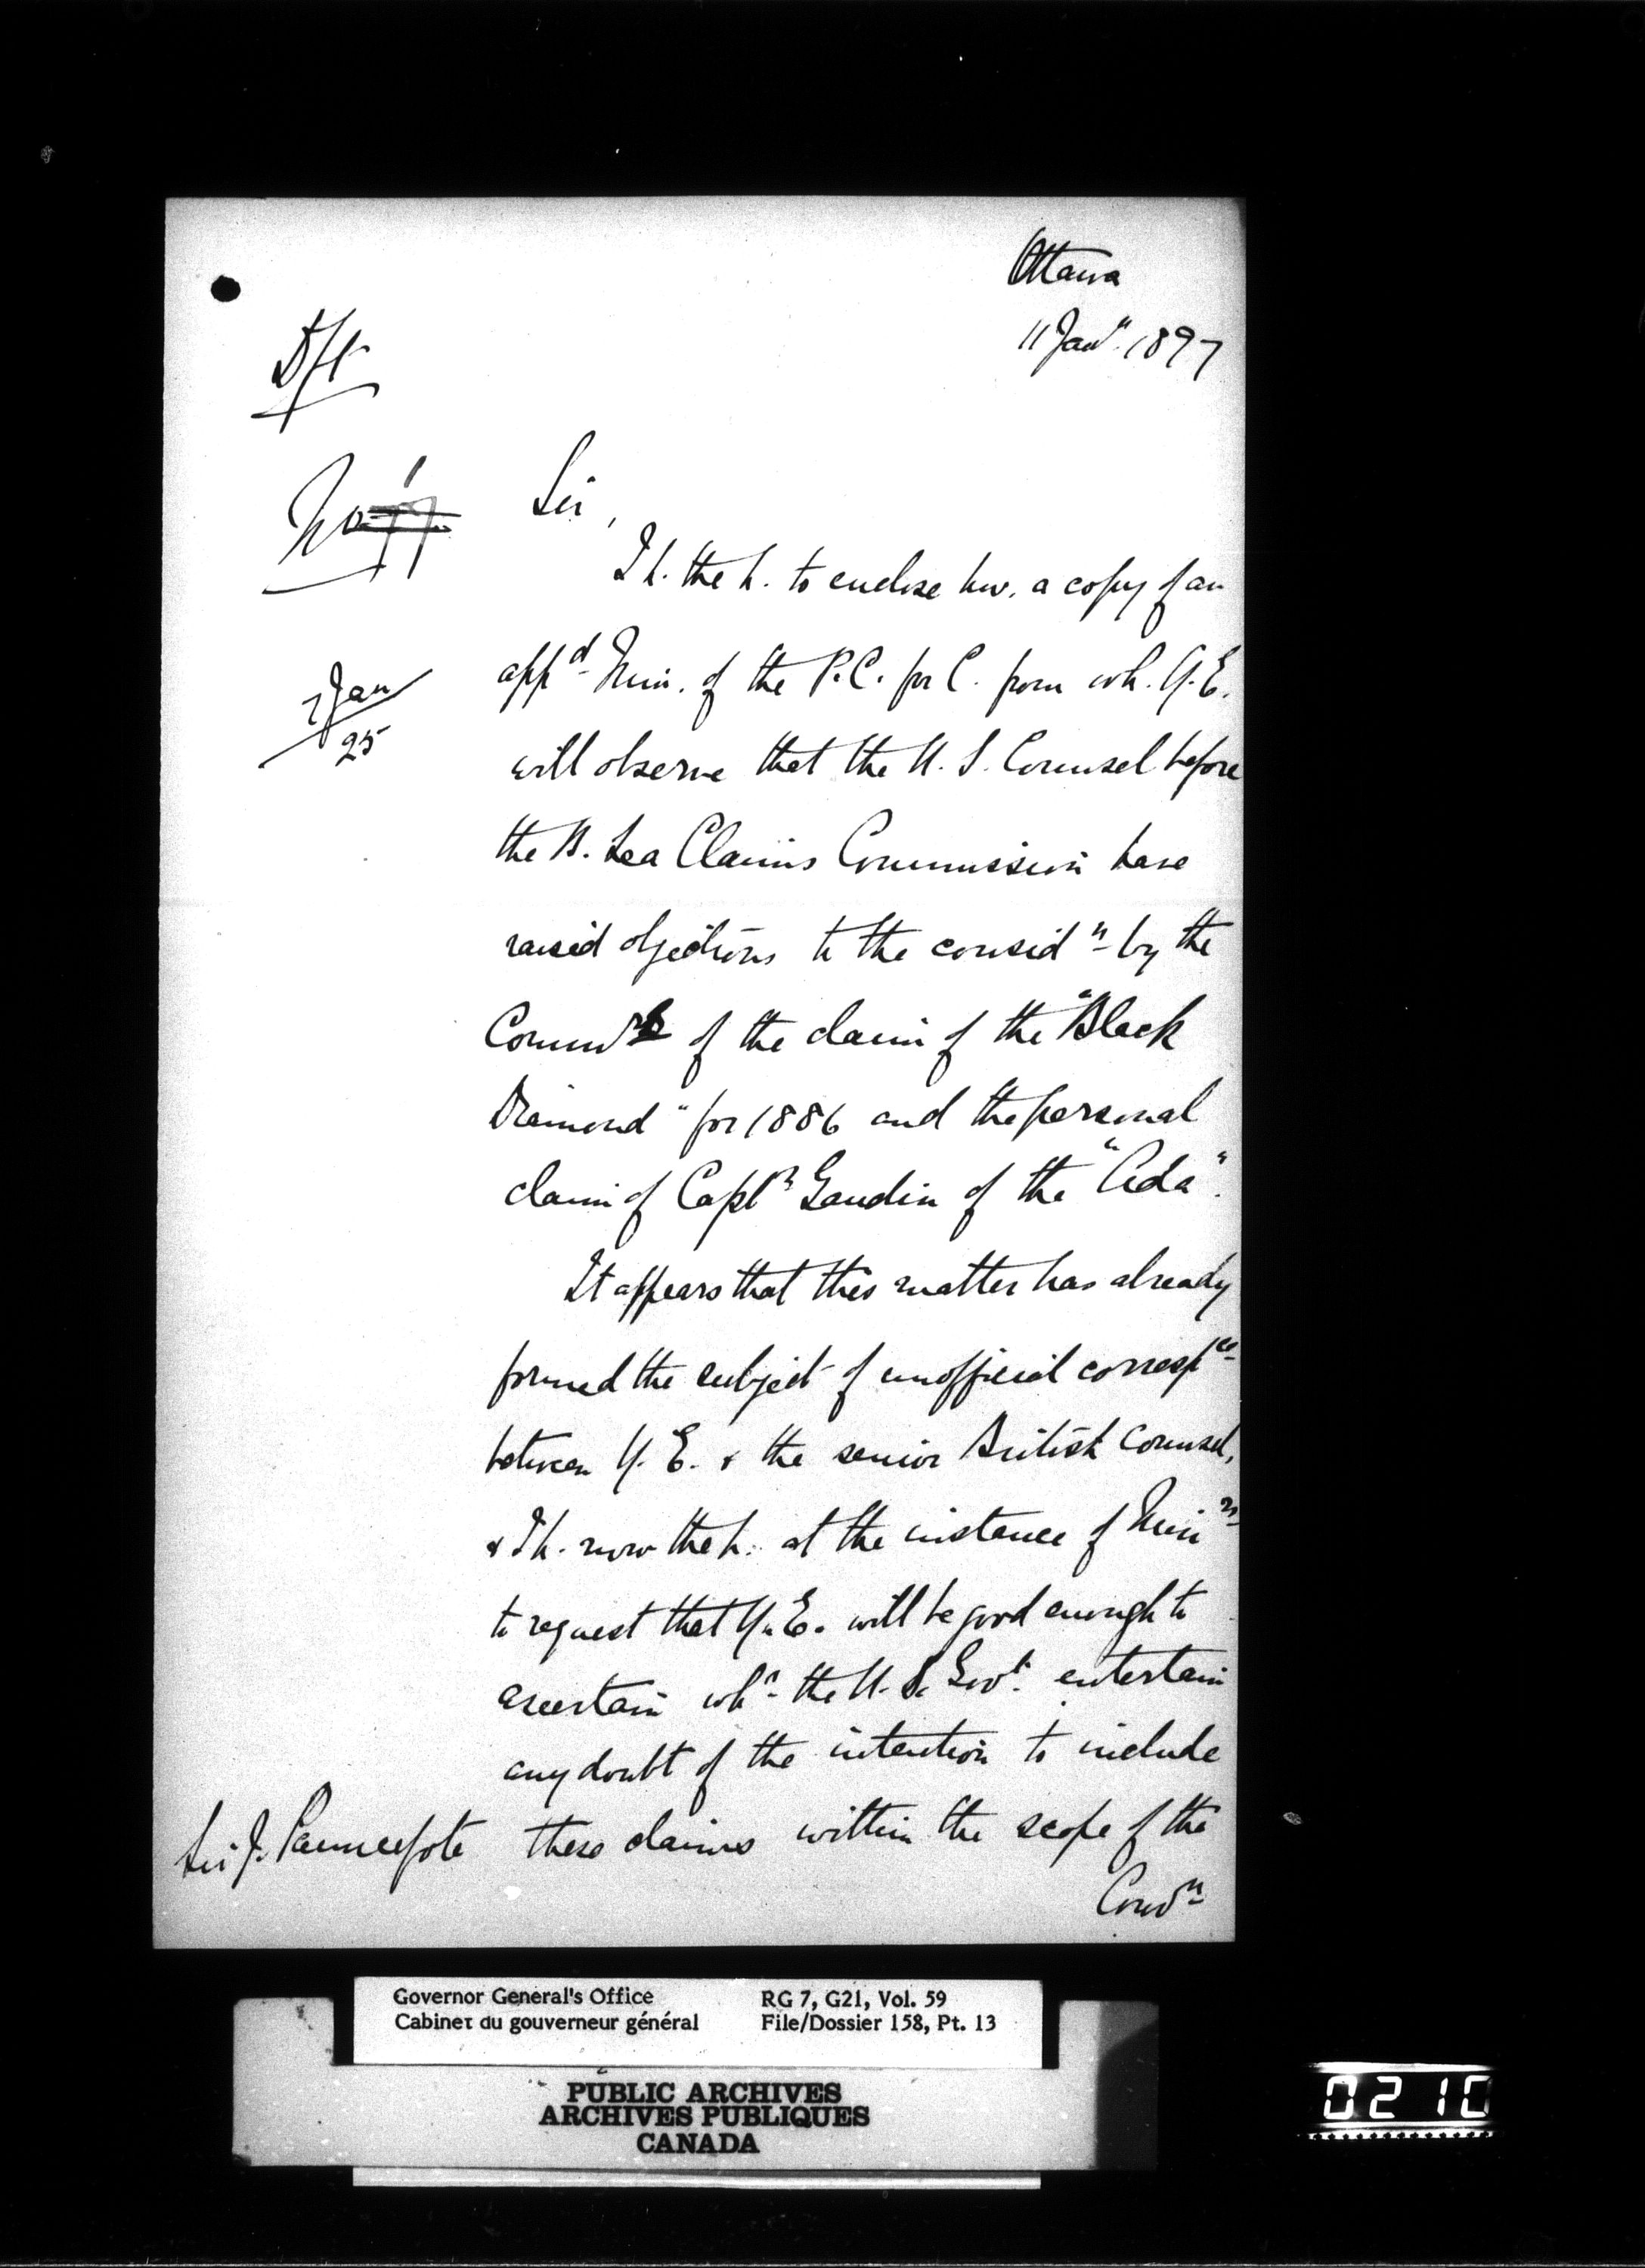 Ottawa
11 Jany. 1897
Dft
No
Sir,
I h. the h. to enclose hw. a copy of an
appd. Min. of the P.C. for C. from wh. Y.E.
will observe that the U.S. Counsel before
the B. Sea Claims Commission have
raised objections to the considn by the
Commrs of the claim of the "Black
Diamond" for 1886 and the personal
claim of Captn Gaudin of the "Ada".
It appears that this matter has already
formed the subject of unofficial correspce
between Y.E. & the senior British Counsel,
& I h. now the h. at the instance of Minrs
to request that Y.E. will be good enough to
ascertain whr the U.S. Govt. entertain
any doubt of the intention to include
Sir J. Pauncefote these claims within the scope of the
Convn
Jan
25
Governor General's Office RG 7, G21, Vol. 59
Cabinet du gouverneur général File/Dossier 158, Pt. 13
PUBLIC ARCHIVES
ARCHIVES PUBLIQUES
CANADA
0210